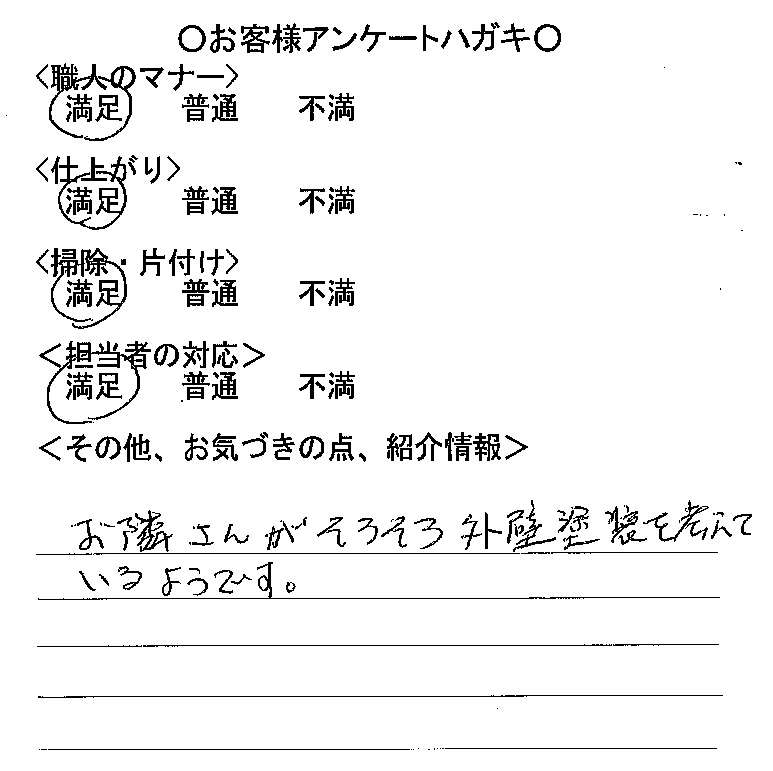 ○お客様アンケートハガキ○
<職人のマナー>
満足 普通 不満
<仕上がり>
満足 普通 不満
<掃除・片付け>
満足 普通 不満
<担当者の対応>
満足 普通 不満
<その他、お気づきの点、紹介情報>
お隣さんがそろそろ外壁塗装を考えて
いるようです。